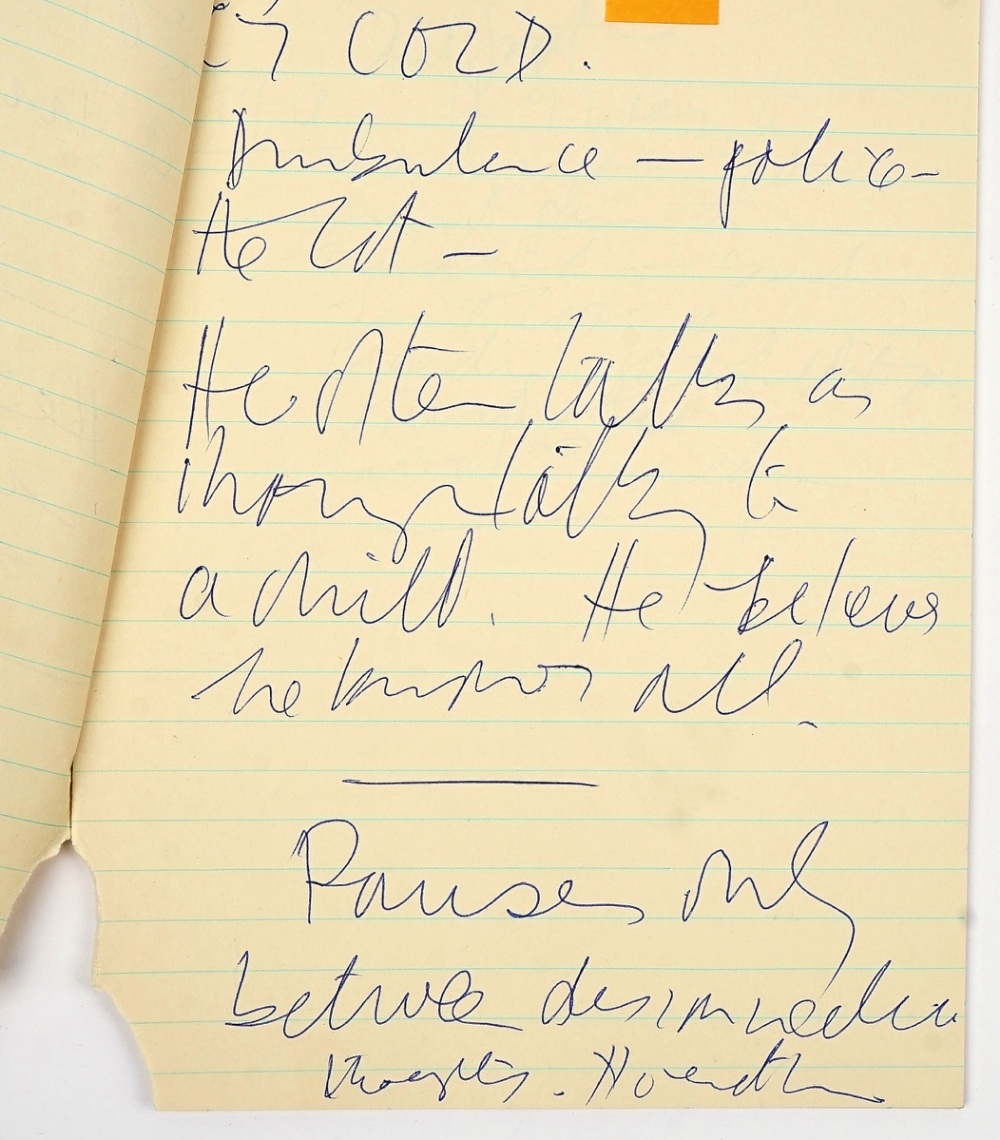 COLD.
Ambulance — police —
He

He often talks as
though talking to
a child. He believes
he knows all.

Pauses only
between
thoughts.